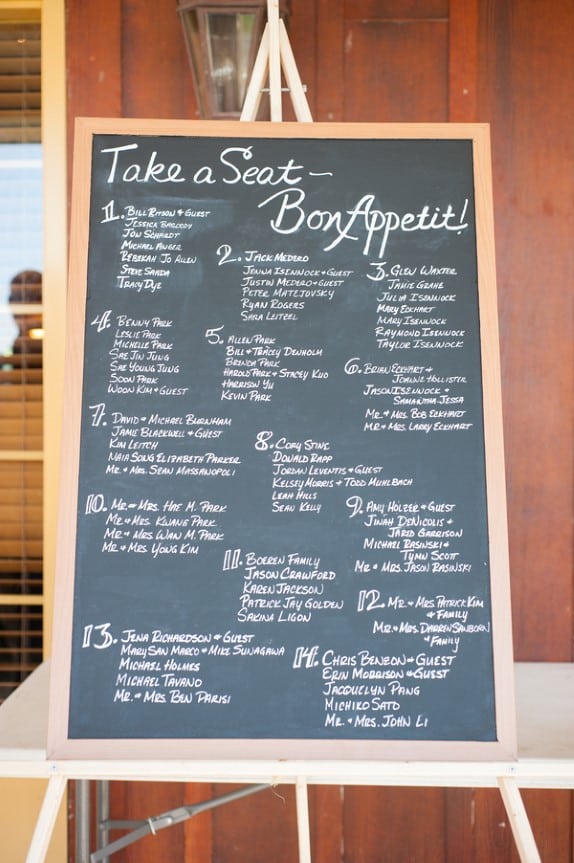 Take a Seat -
Bon Appetit!
1. Bill Ritson & Guest
Jessica Barlody
Jon Schardt
Michael Anger
Rebekah Jo Allen
Steve Sanda
Tracy Dye
2. Jack Medero
Jenna Isennock & Guest
Justin Medero & Guest
Peter Matejovsky
Ryan Rogers
Sara Leitzel
3. Glen Waxter
Jamie Grahe
Julia Isennock
Mary Eckhart
Mary Isennock
Raymond Isennock
Taylor Isennock
4. Benny Park
Leslie Park
Michelle Park
Sae Jin Jung
Sae Young Jung
Soon Park
Woon Kim & Guest
5. Allen Park
Bill & Tracey Denholm
Brenda Park
Harold Park & Stacey Kuo
Harrison Yu
Kevin Park
6. Brian Eckhart &
Joanne Hollister
Jason Isennock &
Samantha Jessa
Mr. & Mrs. Bob Eckhart
Mr. & Mrs. Larry Eckhart
7. David & Michael Burnham
Jamie Blackwell & Guest
Kim Leitch
Naia Song Elizabeth Parker
Mr. & Mrs. Sean Massanopoli
8. Cory Stine
Donald Rapp
Jordan Leventis & Guest
Kelsey Morris & Todd Muhlbach
Leah Hills
Sean Kelly
9. Amy Holzer & Guest
Jinah DeNicolis &
Jared Garrison
Michael Rasinski &
Tynn Scott
Mr. & Mrs. Jason Rasinski
10. Mr. & Mrs. Hae M. Park
Mr. & Mrs. Kwang Park
Mr. & Mrs. Wan M. Park
Mr. & Mrs. Yong Kim
11. Borren Family
Jason Crawford
Karen Jackson
Patrick Jay Golden
Sakina Ligon
12. Mr. & Mrs. Patrick Kim
& Family
Mr. & Mrs. Darren Sanborn
& Family
13. Jena Richardson & Guest
Mary San Marco & Mike Sunagawa
Michael Holmes
Michael Tavano
Mr. & Mrs. Ben Parisi
14. Chris Benzon & Guest
Erin Morrison & Guest
Jacquelyn Pang
Michiko Sato
Mr. & Mrs. John Li